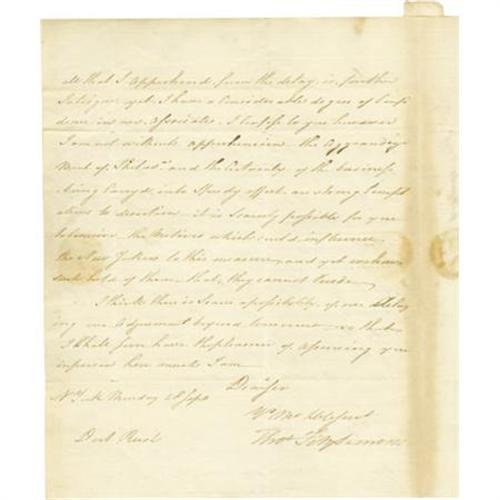 all that I apprehend from the delay, is, further
Intrigue yet. I have a Considerable degree of Confi
dence in our Associates. I Confess to you however
I am not without apprehension the Aggrandize
ment of Philada. and the Certainty of the business
being Carry'd into Speedy effect are strong Tempt
ations to desertion it is Scarcely possible for you
to Conceive the Motives which could influence
the New Yorkers to this measure, and yet we have
such hold of them that they cannot
I think there is Scarce a possibility of our delay
ing our Adjournment beyond tomorrow so that
I Shall soon have the pleasure of Assuring you
in person how much I am
Dear Sir
N York Monday 28 Sept
Yr Mo Ob Servt
Thos. Fitzsimons
Doct Rush